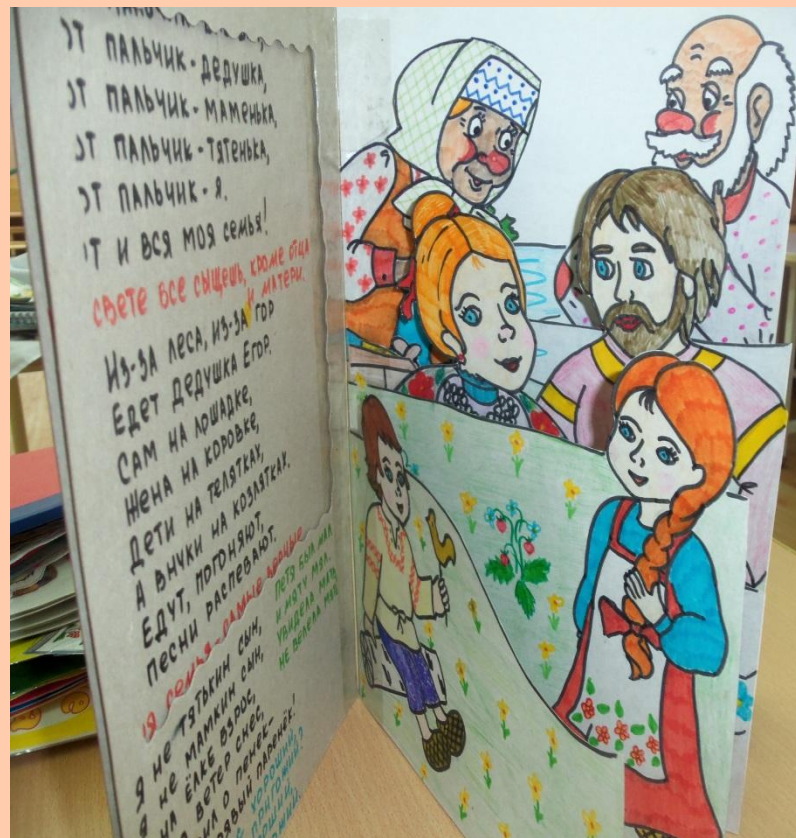 ОТ ПАЛЬЧИК-ДЕДУШКА,
ОТ ПАЛЬЧИК-МАМЕНЬКА,
ОТ ПАЛЬЧИК-ТЯТЕНЬКА,
ОТ ПАЛЬЧИК-Я.
Т И ВСЯ МОЯ СЕМЬЯ!
СВЕТЕ ВСЕ СЫЩЕШЬ, КРОМЕ ОТЦА
И МАТЕРИ.
ИЗ-ЗА ЛЕСА, ИЗ-ЗА ГОР
ЕДЕТ ДЕДУШКА ЕГОР.
САМ НА ЛОШАДКЕ,
ЖЕНА НА КОРОВКЕ,
ДЕТИ НА ТЕЛЯТКАХ,
А ВНУКИ НА КОЗЛЯТКАХ.
ЕДУТ, ПОГОНЯЮТ,
ПЕСНИ РАСПЕВАЮТ.
Я СЕМЬЯ-САМЫЕ РОДНЫЕ
ПЕТЯ БЫЛ МАЛ
И МЯТУ МЯЛ..
УВИДЕЛА МАТЬ
НЕ ВЕЛЕЛА МЯТЬ
Я НЕ ТЯТЬКИН СЫН,
Я НЕ МАМКИН СЫН,
НА ЁЛКЕ ВЗРОС,
Я ВЕТЕР СНЕС,
О ПЕНЕК-
ПАРЕНЁК!
ХОРОШИЙ?
ПРИГОЖИЙ?